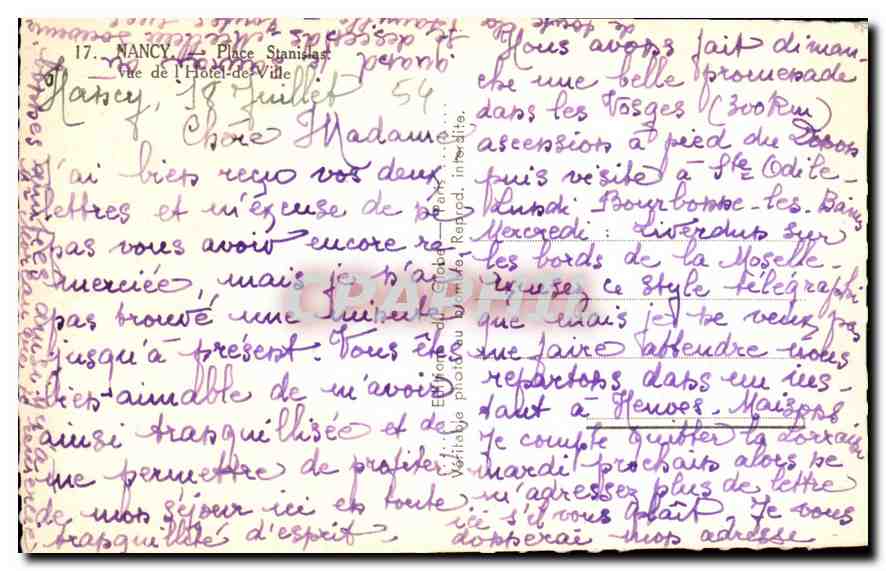 17. NANCY. — Place Stanislas.
Vue de l'Hôtel-de-Ville
Nancy, 18 Juillet 54
Chère Madame
J'ai bien reçu vos deux
lettres et m'excuse de ne
pas vous avoir encore re
merciée, mais je n'ai
pas trouvé une minute
jusqu'à présent. Vous êtes
bien aimable de m'avoir
ainsi tranquillisée et de
me permettre de profiter
de mon séjour ici en toute
tranquillité d'esprit.
Editions du Globe — Paris
Véritable photo au bromure. Reprod. interdite.
Nous avons fait diman
che une belle promenade
dans les Vosges (300 km)
ascension à pied du Donon
puis visite à Ste Odile.
Lundi Bourbonne-les-Bains
Mercredi : Liverdun sur
les bords de la Moselle.
Excusez ce style télégraphi
que mais je ne veux pas
me faire attendre nous
repartons dans un ins-
tant à Neuves-Maisons
Je compte quitter la Lorraine
mardi prochain alors ne
m'adressez plus de lettre
ici s'il vous plaît. Je vous
donnerai mon adresse
quand
CPARPHIL